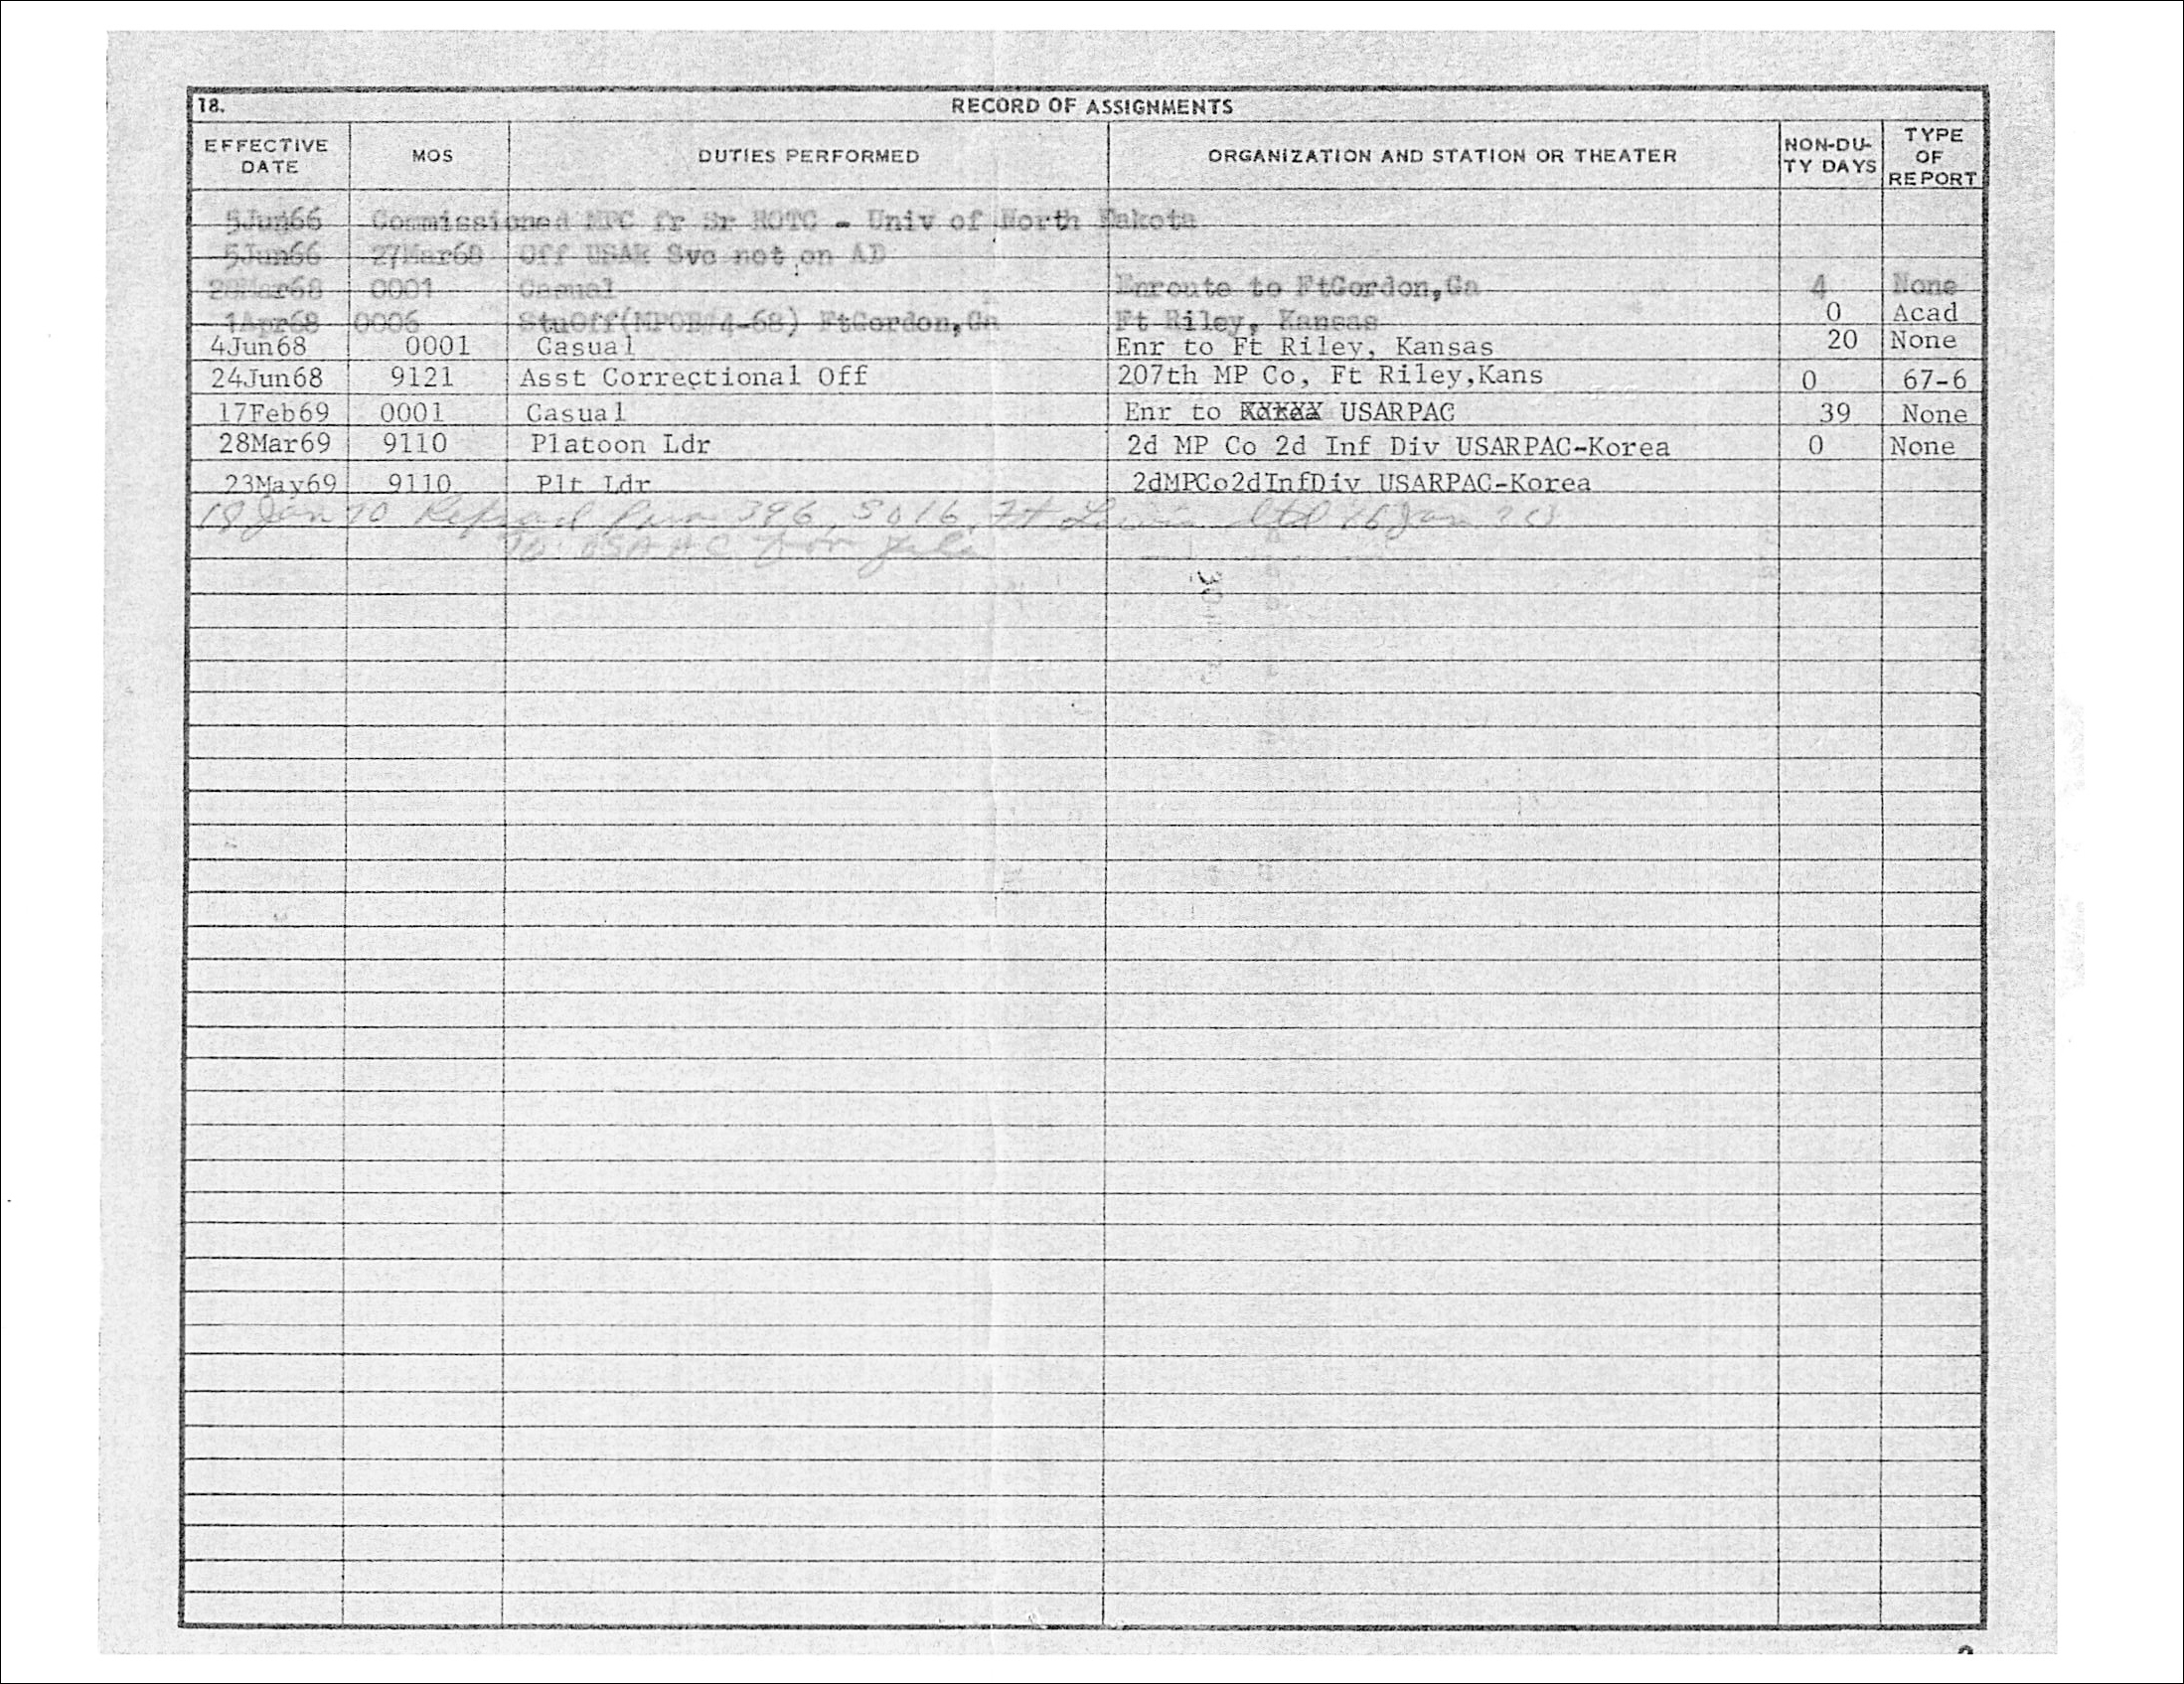 18. RECORD OF ASSIGNMENTS
EFFECTIVE DATE MOS DUTIES PERFORMED ORGANIZATION AND STATION OR THEATER NON-DU-TY DAYS TYPE OF REPORT
5Jun66 Commissioned MPC fr Sr ROTC - Univ of North Dakota
5Jun66 27Mar68 Off USAR Svc not on AD
28Mar68 0001 Casual Enroute to FtGordon,Ga 4 None
1Apr68 0006 StuOff(MPOB#4-68) FtGordon,Ga Ft Riley, Kansas 0 Acad
4Jun68 0001 Casual Enr to Ft Riley, Kansas 20 None
24Jun68 9121 Asst Correctional Off 207th MP Co, Ft Riley,Kans 0 67-6
17Feb69 0001 Casual Enr to USARPAC 39 None
28Mar69 9110 Platoon Ldr 2d MP Co 2d Inf Div USARPAC-Korea 0 None
23May69 9110 Plt Ldr 2dMPCo2dInfDiv USARPAC-Korea
18 Jan 70 Refrad 396, SO 16, Ft Lewis dtd 16 Jan 70
To: file